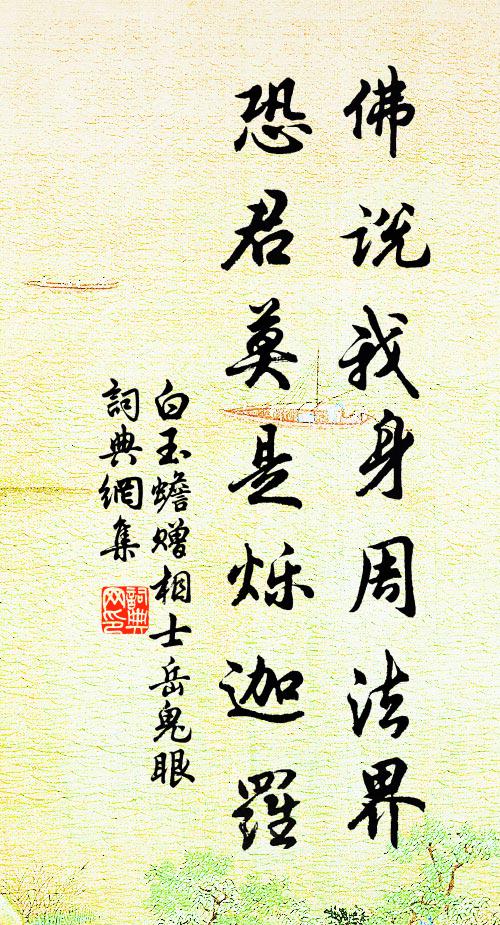 佛说我身周法界
恐君莫是烁迦羅
白玉蟾赠相士岳鬼眼
詞典網集
詞典
网印